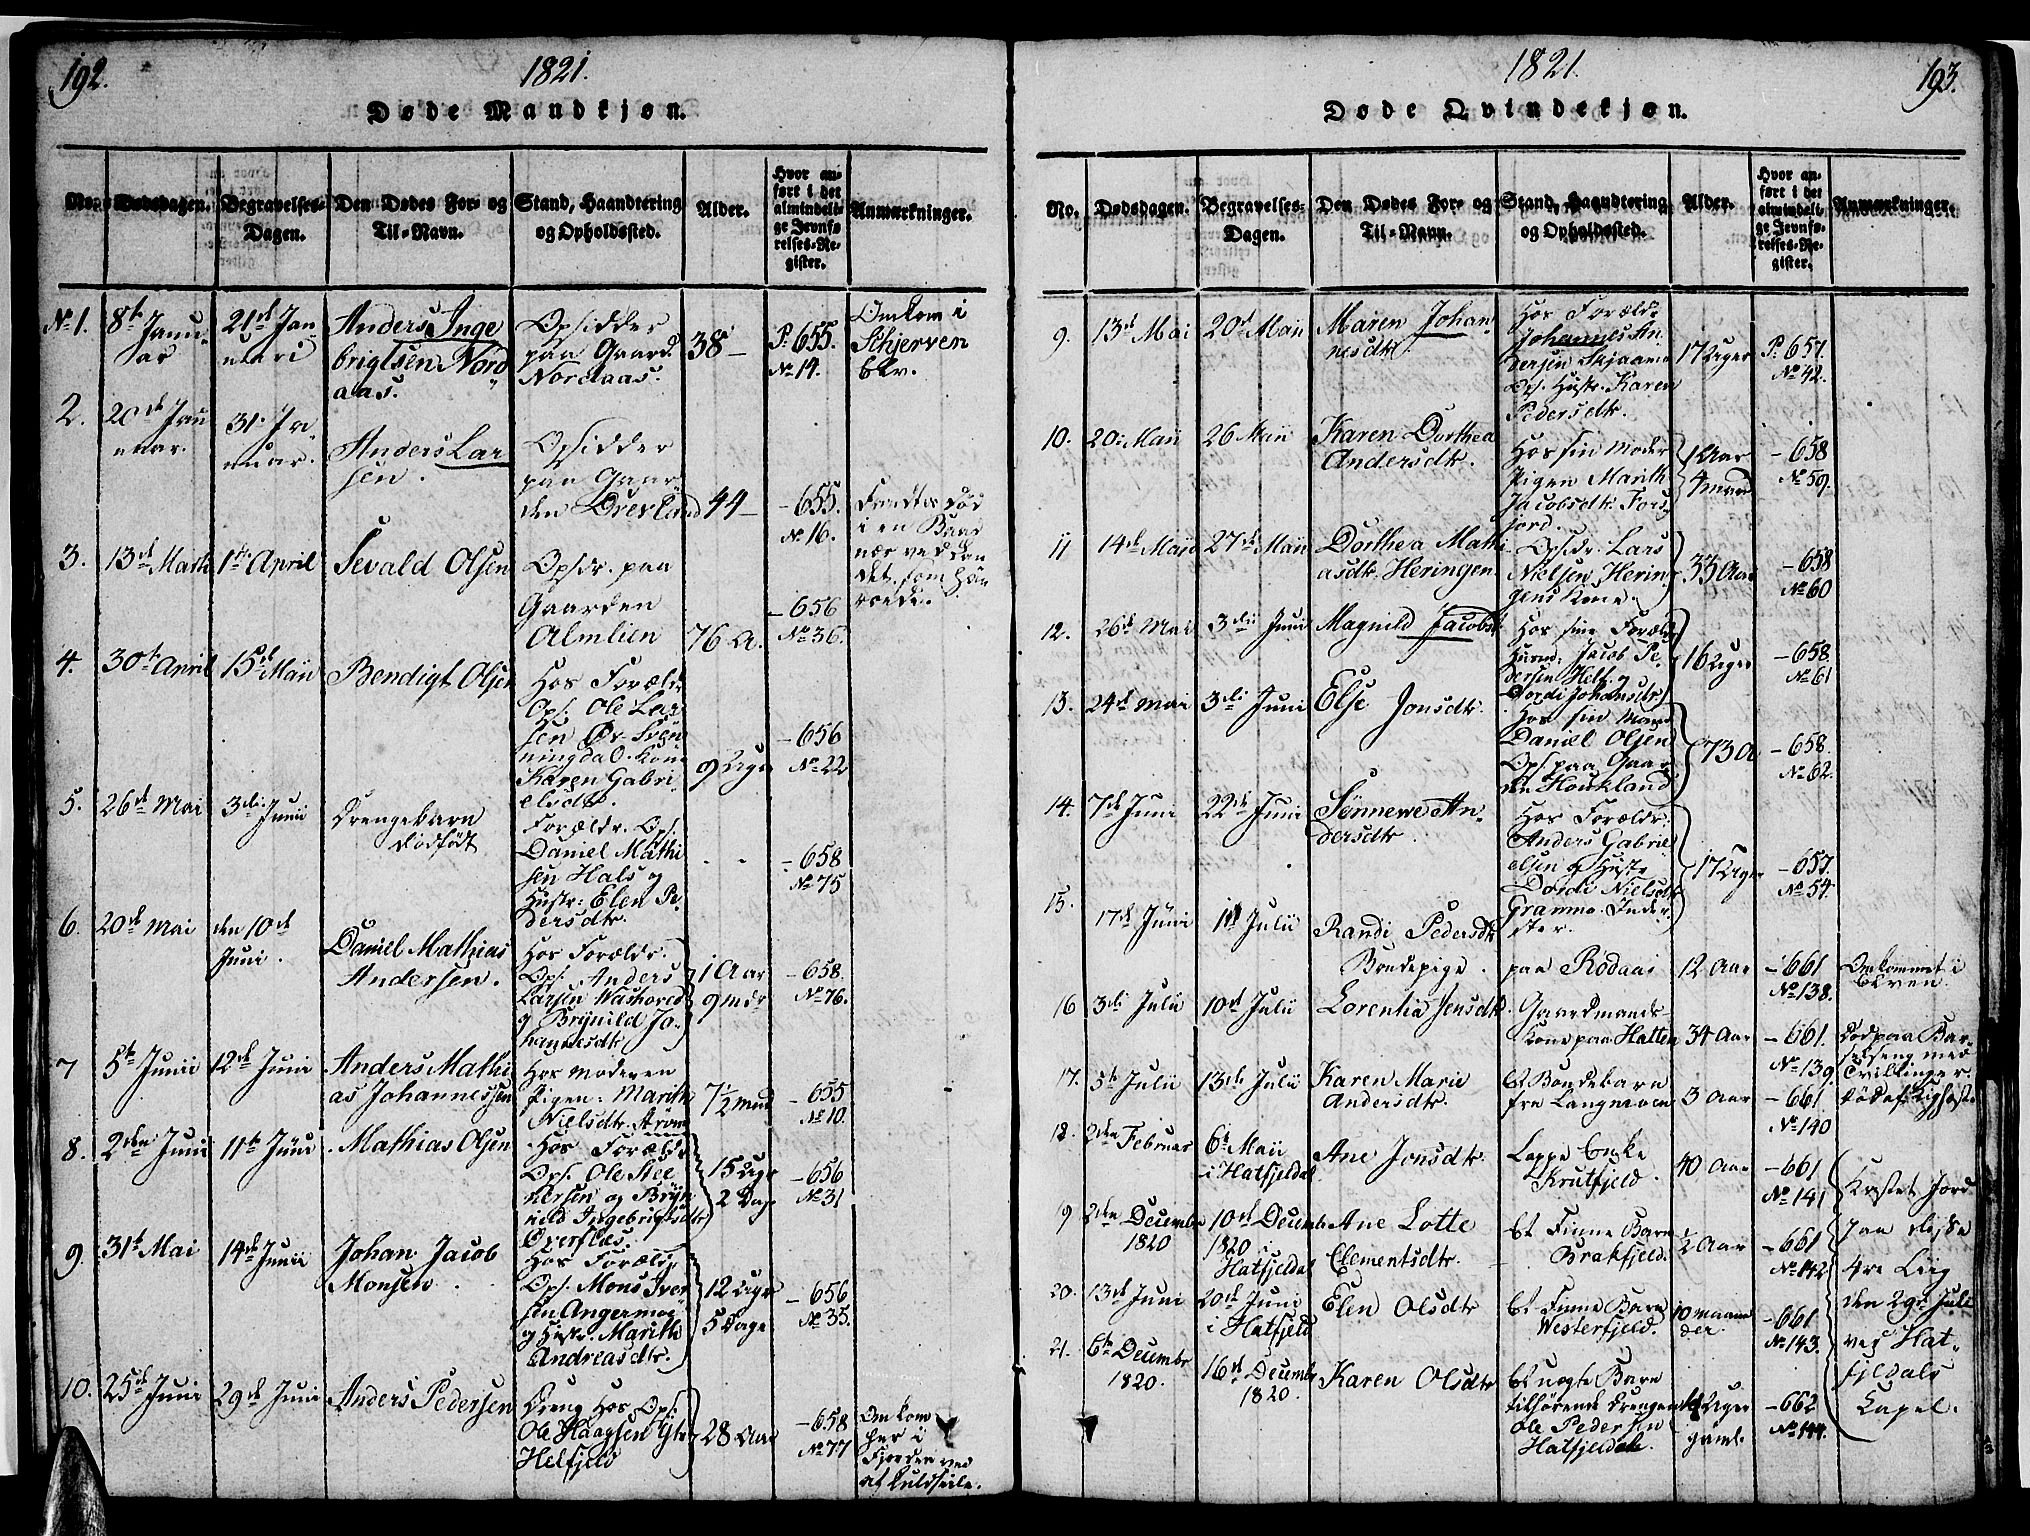 192.
1821.
Døde Mandkjøn.
No.
Dødsdagen.
Begravelses-
Dagen.
Den Dødes For- og
Til-Navn.
Stand, Haandtering
og Opholdssted.
Alder.
Hvor an-
ført i det
almindeli-
ge Jevnfø-
relses-Re-
gister.
Anmærkninger.
No 1.
8de Janu-
ar
21de Jan-
uari
Anders Inge
brigtsen Nord
aas.
Opsidder
paa Gaard
Nordaas.
38 –
P. 655.
No 14.
Omkom i
Schjerven
Elv.
2.
20de Jan
uar.
31. Ja
nuar.
Anders Lar
sen.
Opsidder
paa Gaar
den Drevland
44 –
– 655.
No 16.
død
i en Baad
nær ved Lan
det, som
3.
13de Marts
1ste April
Sevald Olsen
Opsdr. paa
Gaarden
Almlien
76 A.
– 656
No 36.
4.
30te April
15de Maii
Bendigt Olsen
Hos Forældr
Ops. Ole Lar
sen Øv. Sven
ningdal. Kone
Karen Gabri
elsdtr.
9 Uger
– 656
No 22
5.
26de Mai
3die Junii
Drengebarn
dødfødt
Forældr. Ops.
Daniel Mathi
sen Hals og
Hustr: Elen Pe
dersdtr.
– 658
No 75
6.
20de Mai
den 10de
Juni.
Daniel Mathias
Andersen.
Hos Forældr.
Ops. Anders
Larsen
og Brynild Jo-
hannesdtr
1 Aar
9 mdr
– 658.
No 76.
7
5te Junii
12de Juni
Anders Mathi
as Johannessen
Hos Moderen
Pigen: Marith
Nielsdtr. Strøm
7½ mnd
– 655
No 10.
8.
2den Juni
11te Juni
Mathias Olsen
Hos Forældr
Ops. Ole Stee
nersen og Bryn
nild Ingebrigtsdtr
Øverfles.
15 Uger
2 Dage
– 656
No 31
9.
31te Mai
14de Junii
Johan Jacob
Monsen.
Hos Forældr
Ops. Mons Iver
sen Angermoe
og Hustr. Marith
Andreasdtr.
12 Uger
5 Dage
– 656
No 35.
10.
25de Juni
29de Juni
Anders Pedersen
Dreng hos Ops.
Ole Haagsen Ytr
Helfjeld
28 Aar
– 658
No 77
Omkom
her i
Fjorden ved
at Kuldseile.
1821.
193.
Døde Qvindekjøn.
No.
Dødsdagen.
Begravelses-
Dagen.
Den Dødes For- og
Til-Navn.
Stand, Haandtering
og Opholdssted.
Alder.
Hvor an-
ført i det
almindeli-
ge Jevnfø-
relses-Re-
gister.
Anmærkninger.
9.
13de Mai
20de Maii
Maren Johan
nesdtr.
Hos Forældr
Johannes An
dersen
Ops. Hustr. Karen
Pedersdtr.
17 Uger
P. 657.
No 42.
10.
20. Maii
26 Maii
Karen Dorthea
Andersdtr.
Hos sin Moder
Pigen Marith
Jacobsdtr. Fors
fjord.
1 Aar
4 mnd
– 658
No 59.
11
14de Maii
27de Maii
Dorthea Mathi
asdtr. Heringen
Opsdr. Lars
Nielsen Herin
gens Kone.
33 Aar
– 658
No 60
12.
26de Mai
3die Juni
Magnild Jacobsd
Hos sine Forældr
Jacob Pe
dersen Helf. og
Dordi Johansdtr
16 Uger
– 658.
No 61
13.
24de Mai
3die Juni
Else Jonsdtr
Hos sin Mand
Daniel Olsen
Ops. paa Gaar
den Houkland
73 A
– 658.
No 62.
14.
7de Juni
22de Juni
Sønnewe An-
dersdtr.
Hos Forældr.
Anders Gabrie
elsen og Hustr
Dordi Nielsdtr
Grammo. Inder
ster.
17 Uger
– 657.
No 54.
15.
17de Juni
1 Julii
Randi Pedersdtr
Bondepige.
paa Rødaas
12 Aar
– 661
No 138.
Omkommet i
Elven.
16
3die Julii
10de Julii
Lorentia Jensdtr
Gaardmands-
kone paa Hatten
34 Aar
– 661.
No 139.
Død paa Bar
selseng med
Tvillinger.
17.
5te Julii
13de Julii
Karen Marie
Andersdtr.
Et Bondebarn
fra Langmoen
3 Aar
– 661
No 140
18.
2den Februar
6te Maii
i Hatfjeldal
Ane Jonsdtr.
Lappe Enke
Krutfjeld.
40 Aar
– 661
No 141
Kastet Jord
paa disse
4re Liig
den 29de Julii
ved Hat-
fjeldals
Capel.
19
2den Decembr
1820
10de Decembr
1820 i
Hatfjeldal
Ane Lotte
Clementsdtr.
Et Finne Barn
Brakfjeld.
½ Aar
– 661
No 142
20.
13de Juni
20de Juni
i Hatfjeld
Elen Olsdtr
Et Finne Barn
Westerfjeld.
10 maane
der.
– 661
No 143.
21.
6te Decembr
1820.
16de Decembr
1820.
Karen Olsdtr
Et uægte Barn
tilhørende Drengen
Ole Pedersen
Hatfjeldal.
Uger
gaml.
– 662
No 144.